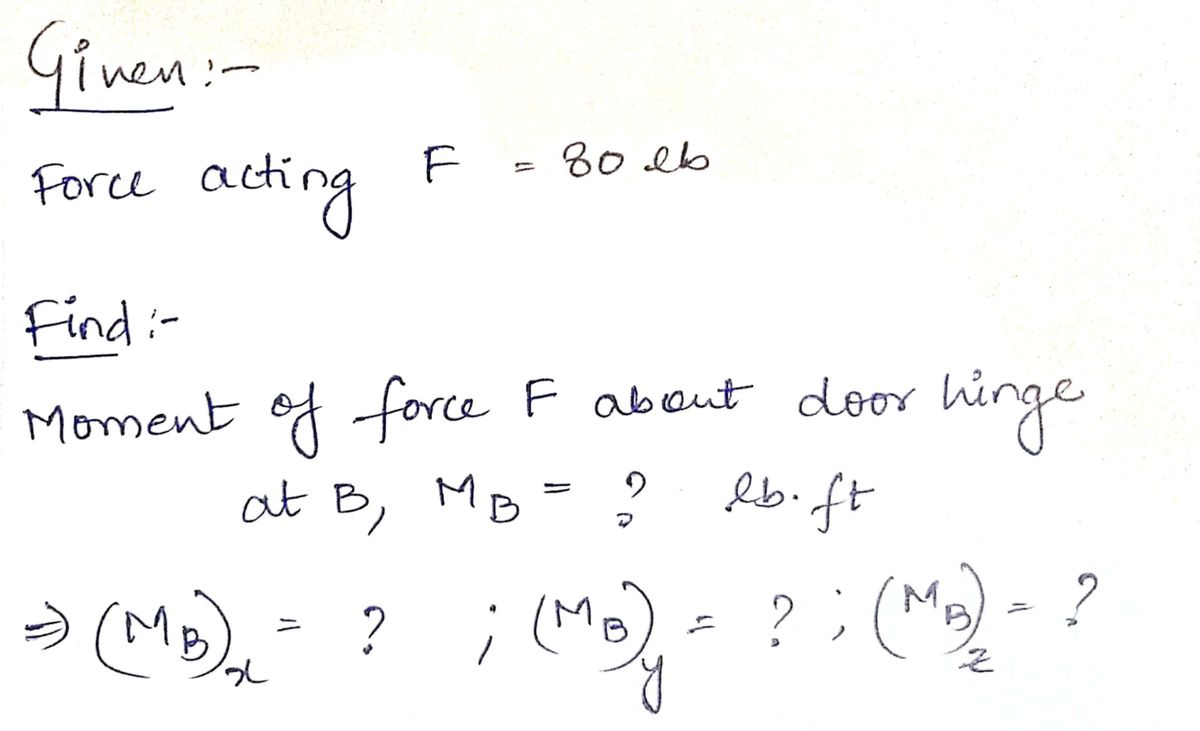 Given :-
Force acting F = 80 lb
Find :-
Moment of force F about door hinge
at B, MB = ? lb.ft
⇒ (MB)x = ? ; (MB)y = ? ; (MB)z = ?